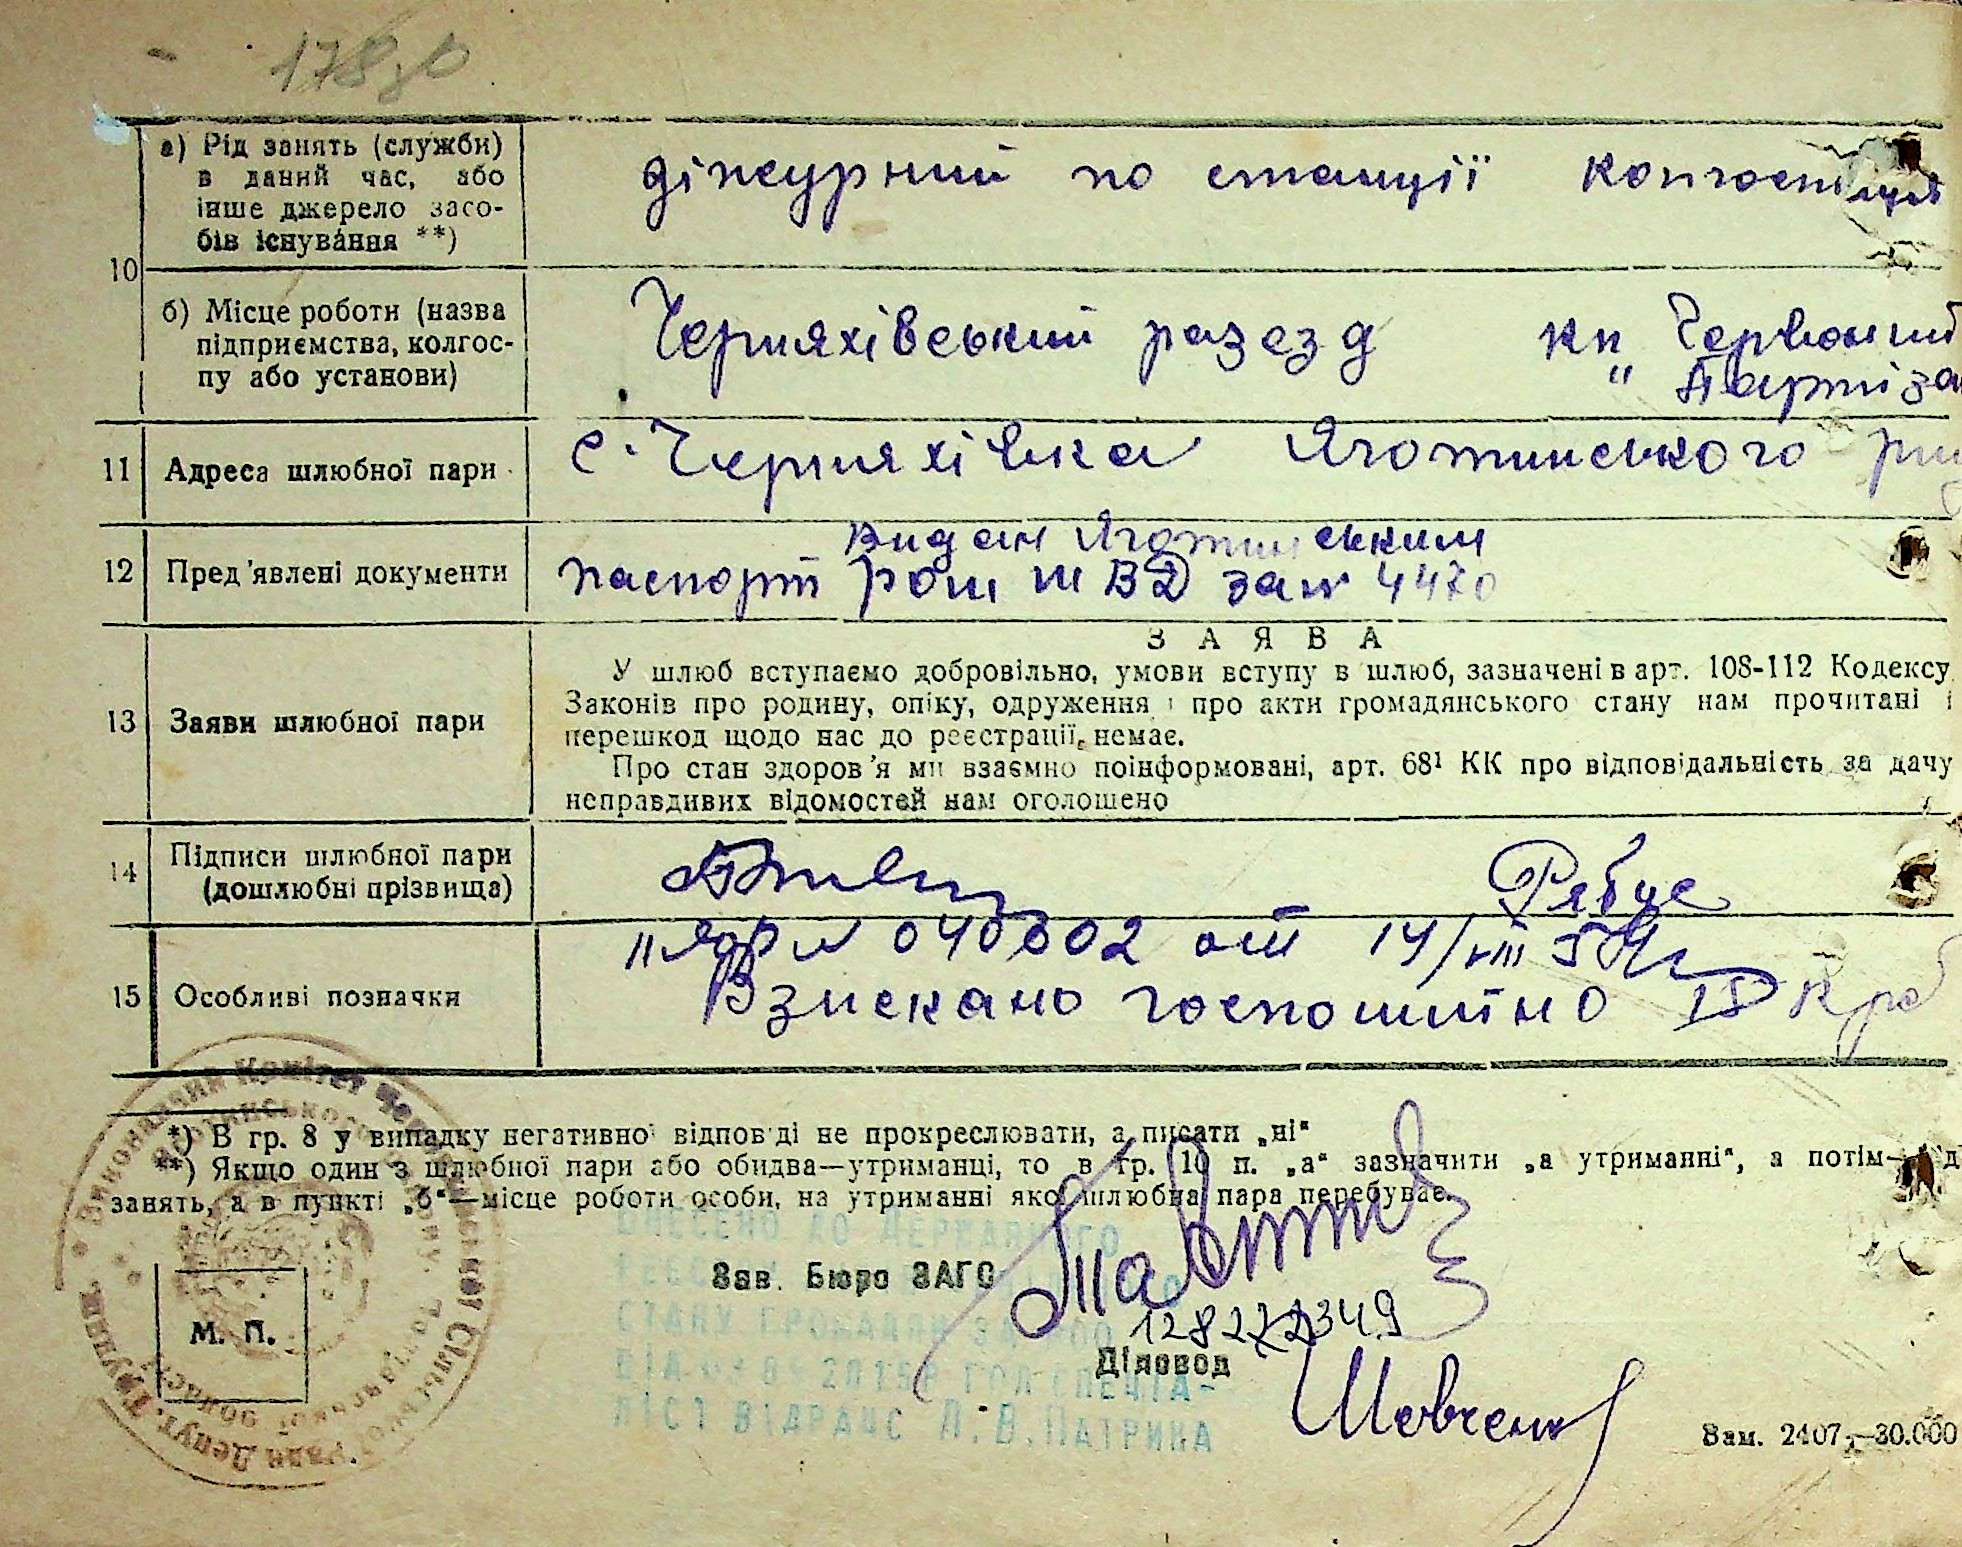 178
а) Рід занять (служби)
в даний час, або
інше джерело засо-
бів існування **)
діжурний по станції колгоспниця
10
б) Місце роботи (назва
підприємства, колгос-
пу або установи)
Черняхівський разезд кп Червоний
" Партіза
11 Адреса шлюбної пари с. Черняхівка Яготинського р
видан Яготинським
12 Пред'явлені документи паспорт МВД за № 4470
З А Я В А
13 Заяви шлюбної пари
У шлюб вступаємо добровільно, умови вступу в шлюб, зазначені в арт. 108-112 Кодексу
Законів про родину, опіку, одруження і про акти громадянського стану нам прочитані і
перешкод щодо нас до реєстрації немає.
Про стан здоров'я ми взаємно поінформовані, арт. 68¹ КК про відповідальність за дачу
неправдивих відомостей нам оголошено
14 Підписи шлюбної пари
(дошлюбні прізвища)
Рябце
040602 от 14/VIII 54
15 Особливі позначки Взискано госпошитно 15 крб
*) В гр. 8 у випадку негативної відповіді не прокреслювати, а писати „ні“
**) Якщо один з шлюбної пари або обидва—утриманці, то в гр. 10 п. „а“ зазначити „а утриманні“, а потім—
занять, а в пункті „б“—місце роботи особи, на утриманні якої шлюбна пара перебуває.
Виконавчий Комітет Сільської Ради Депут. Трудящ.
ВНЕСЕНО ДО ДЕРЖАВНОГО
Зав. Бюро ЗАГС
СТАНУ ГРОМАДЯН ЗА
Діловод
Шевченко
ЛІСТ ВІДРАЦС Л.В.ПАТРИКА
М. П.
Зам. 2407.—30.000